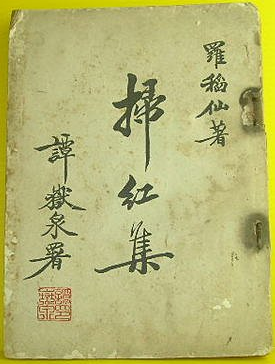 羅稻仙著
掃紅集
譚嶽泉署